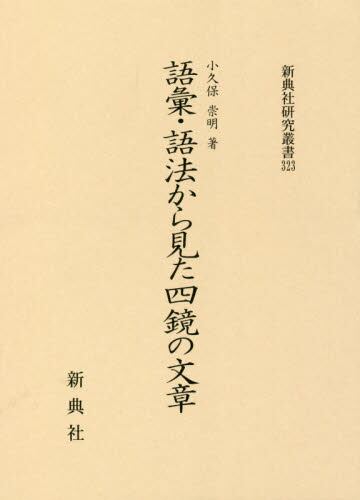 新典社研究叢書323
小久保 崇明 著
語彙・語法から見た四鏡の文章
新典社